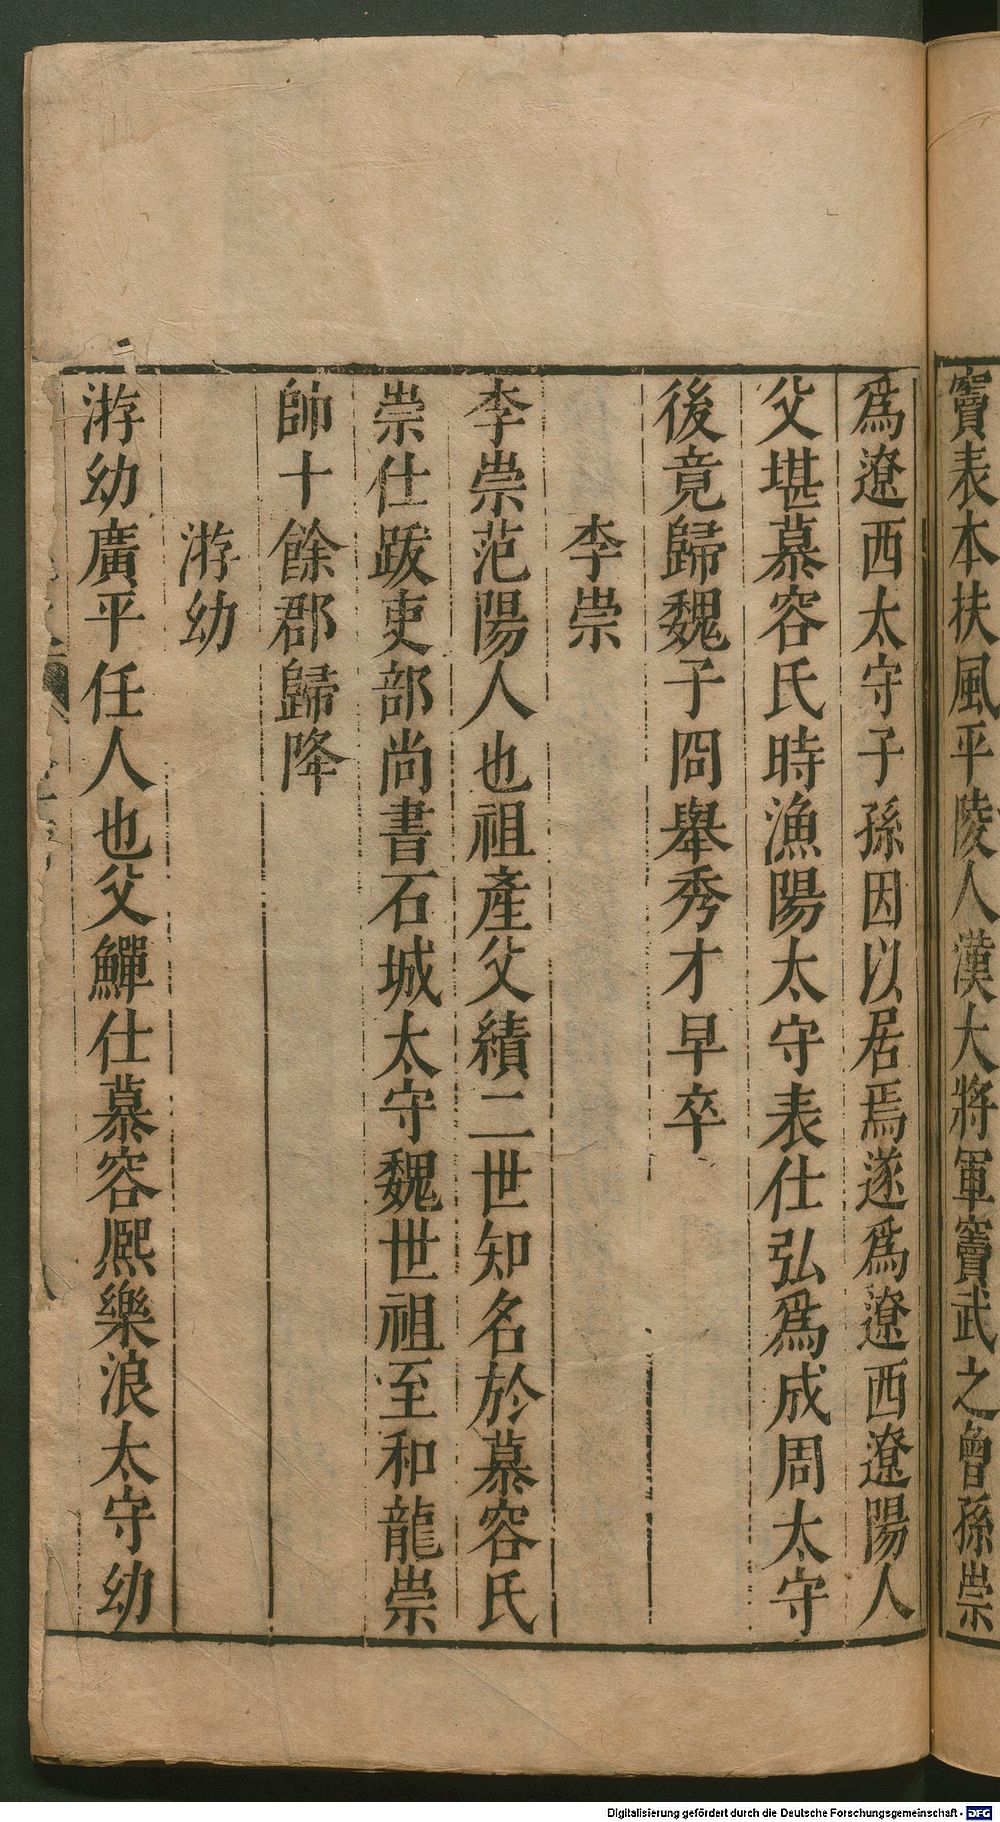 竇表本扶風平陵人漢大將軍竇武之曾孫崇
爲遼西太守子孫因以居焉遂爲遼西遼陽人
父堪慕容氏時漁陽太守表仕弘爲成周太守
後竟歸魏子冏舉秀才早卒
李崇
李崇范陽人也祖產父績二世知名於慕容氏
崇仕跋吏部尚書石城太守魏世祖至和龍崇
帥十餘郡歸降
游幼
游幼廣平任人也父鱓仕慕容熈樂浪太守幼
Digitalisierung gefördert durch die Deutsche Forschungsgemeinschaft - DFG